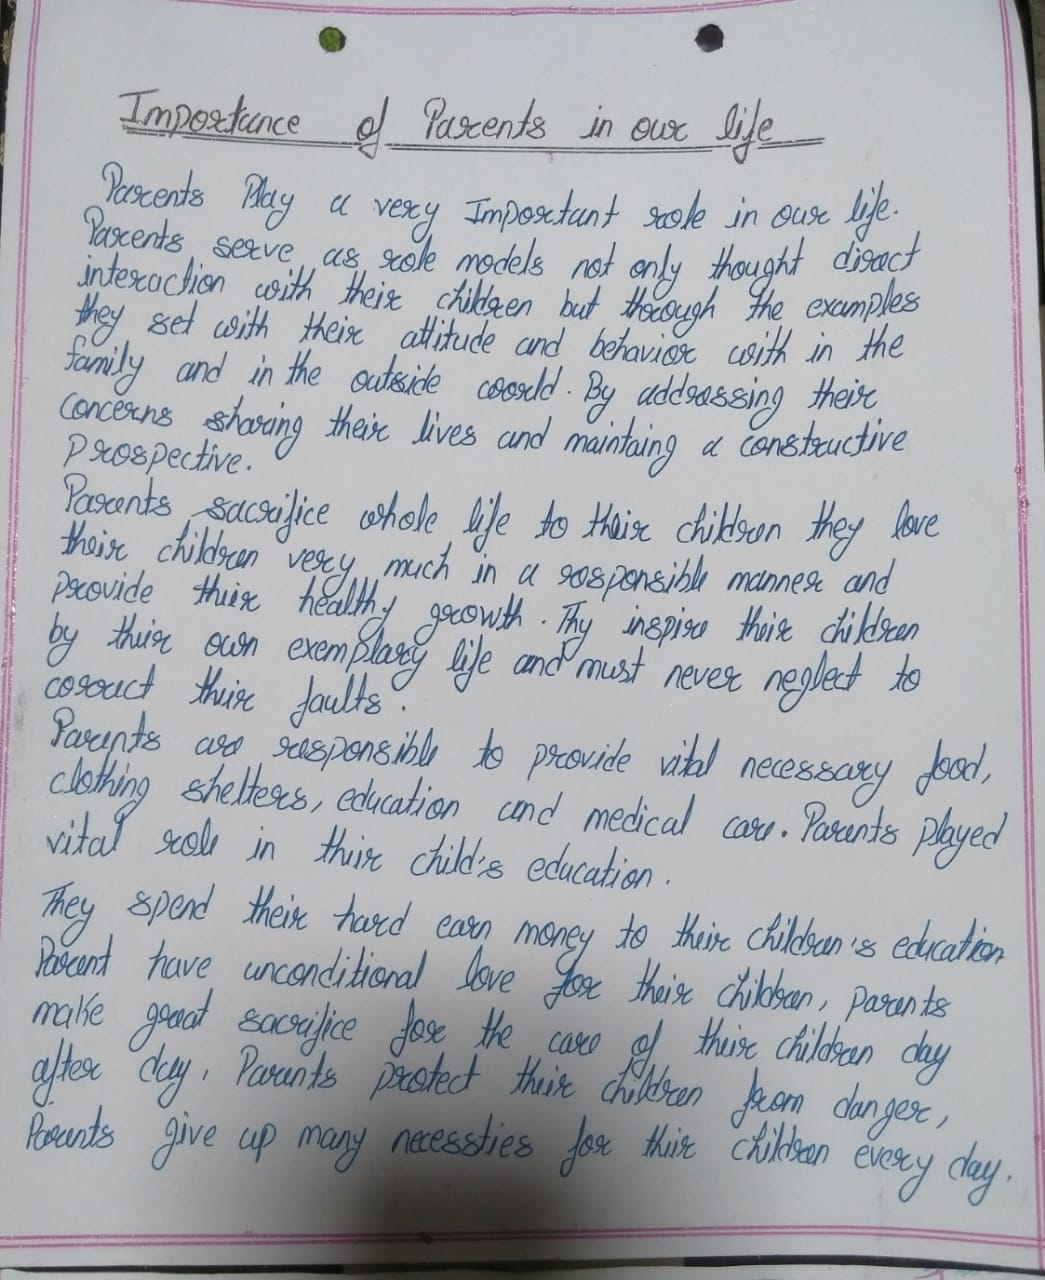 Importance of Parents in our life
Parents Play a very Important role in our life.
Parents serve as role models not only thought diract
interaction with their children but through the examples
they set with their attitude and behavior with in the
family and in the outside woorld. By addrassing their
concerns sharing their lives and maintaing a constructive
prospective.
Parents sacrifice whole life to their children they love
their children very much in a rosponsible manner and
provide thier healthy growth. Thy inspire their children
by thier own exemplary life and must never neglect to
corract thier faults.
Parents are responsible to provide vital necessary food,
clothing shelters, education and medical care. Parents played
vital role in thier child's education.
They spend their hard earn money to their children's education
Parent have unconditional love for their children, parents
make great sacrifice for the care of their children day
after day. Parents protect their children from danger,
Parents give up many necessties for thier children every day.